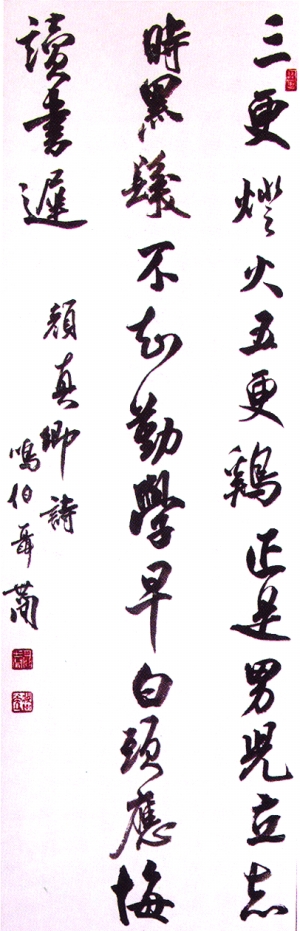 三更燈火五更鷄正是男兒立志
時黑髮不知勤學早白頭應悔
讀書遲
顏真卿詩
鳴伯聶